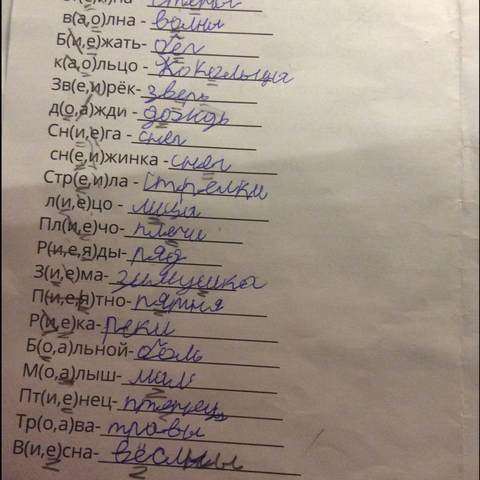 в(а,о)лна - волны
Б(и,е)жать- бег
к(а,о)льцо -
Зв(е,и)рёк- зверь
д(о,а)жди - дождь
Сн(и,е)га - снег
сн(е,и)жинка - снег
Стр(е,и)ла - Стрелки
л(и,е)цо - лица
Пл(и,е)чо- плечи
Р(и,е,я)ды- ряд
З(и,е)ма- зимушка
П(и,е,я)тно- пятня
Р(и,е)ка- реки
Б(о,а)льной- боль
М(о,а)лыш- мал
Пт(и,е)нец- птенец
Тр(о,а)ва- травы
В(и,е)сна- вёсны